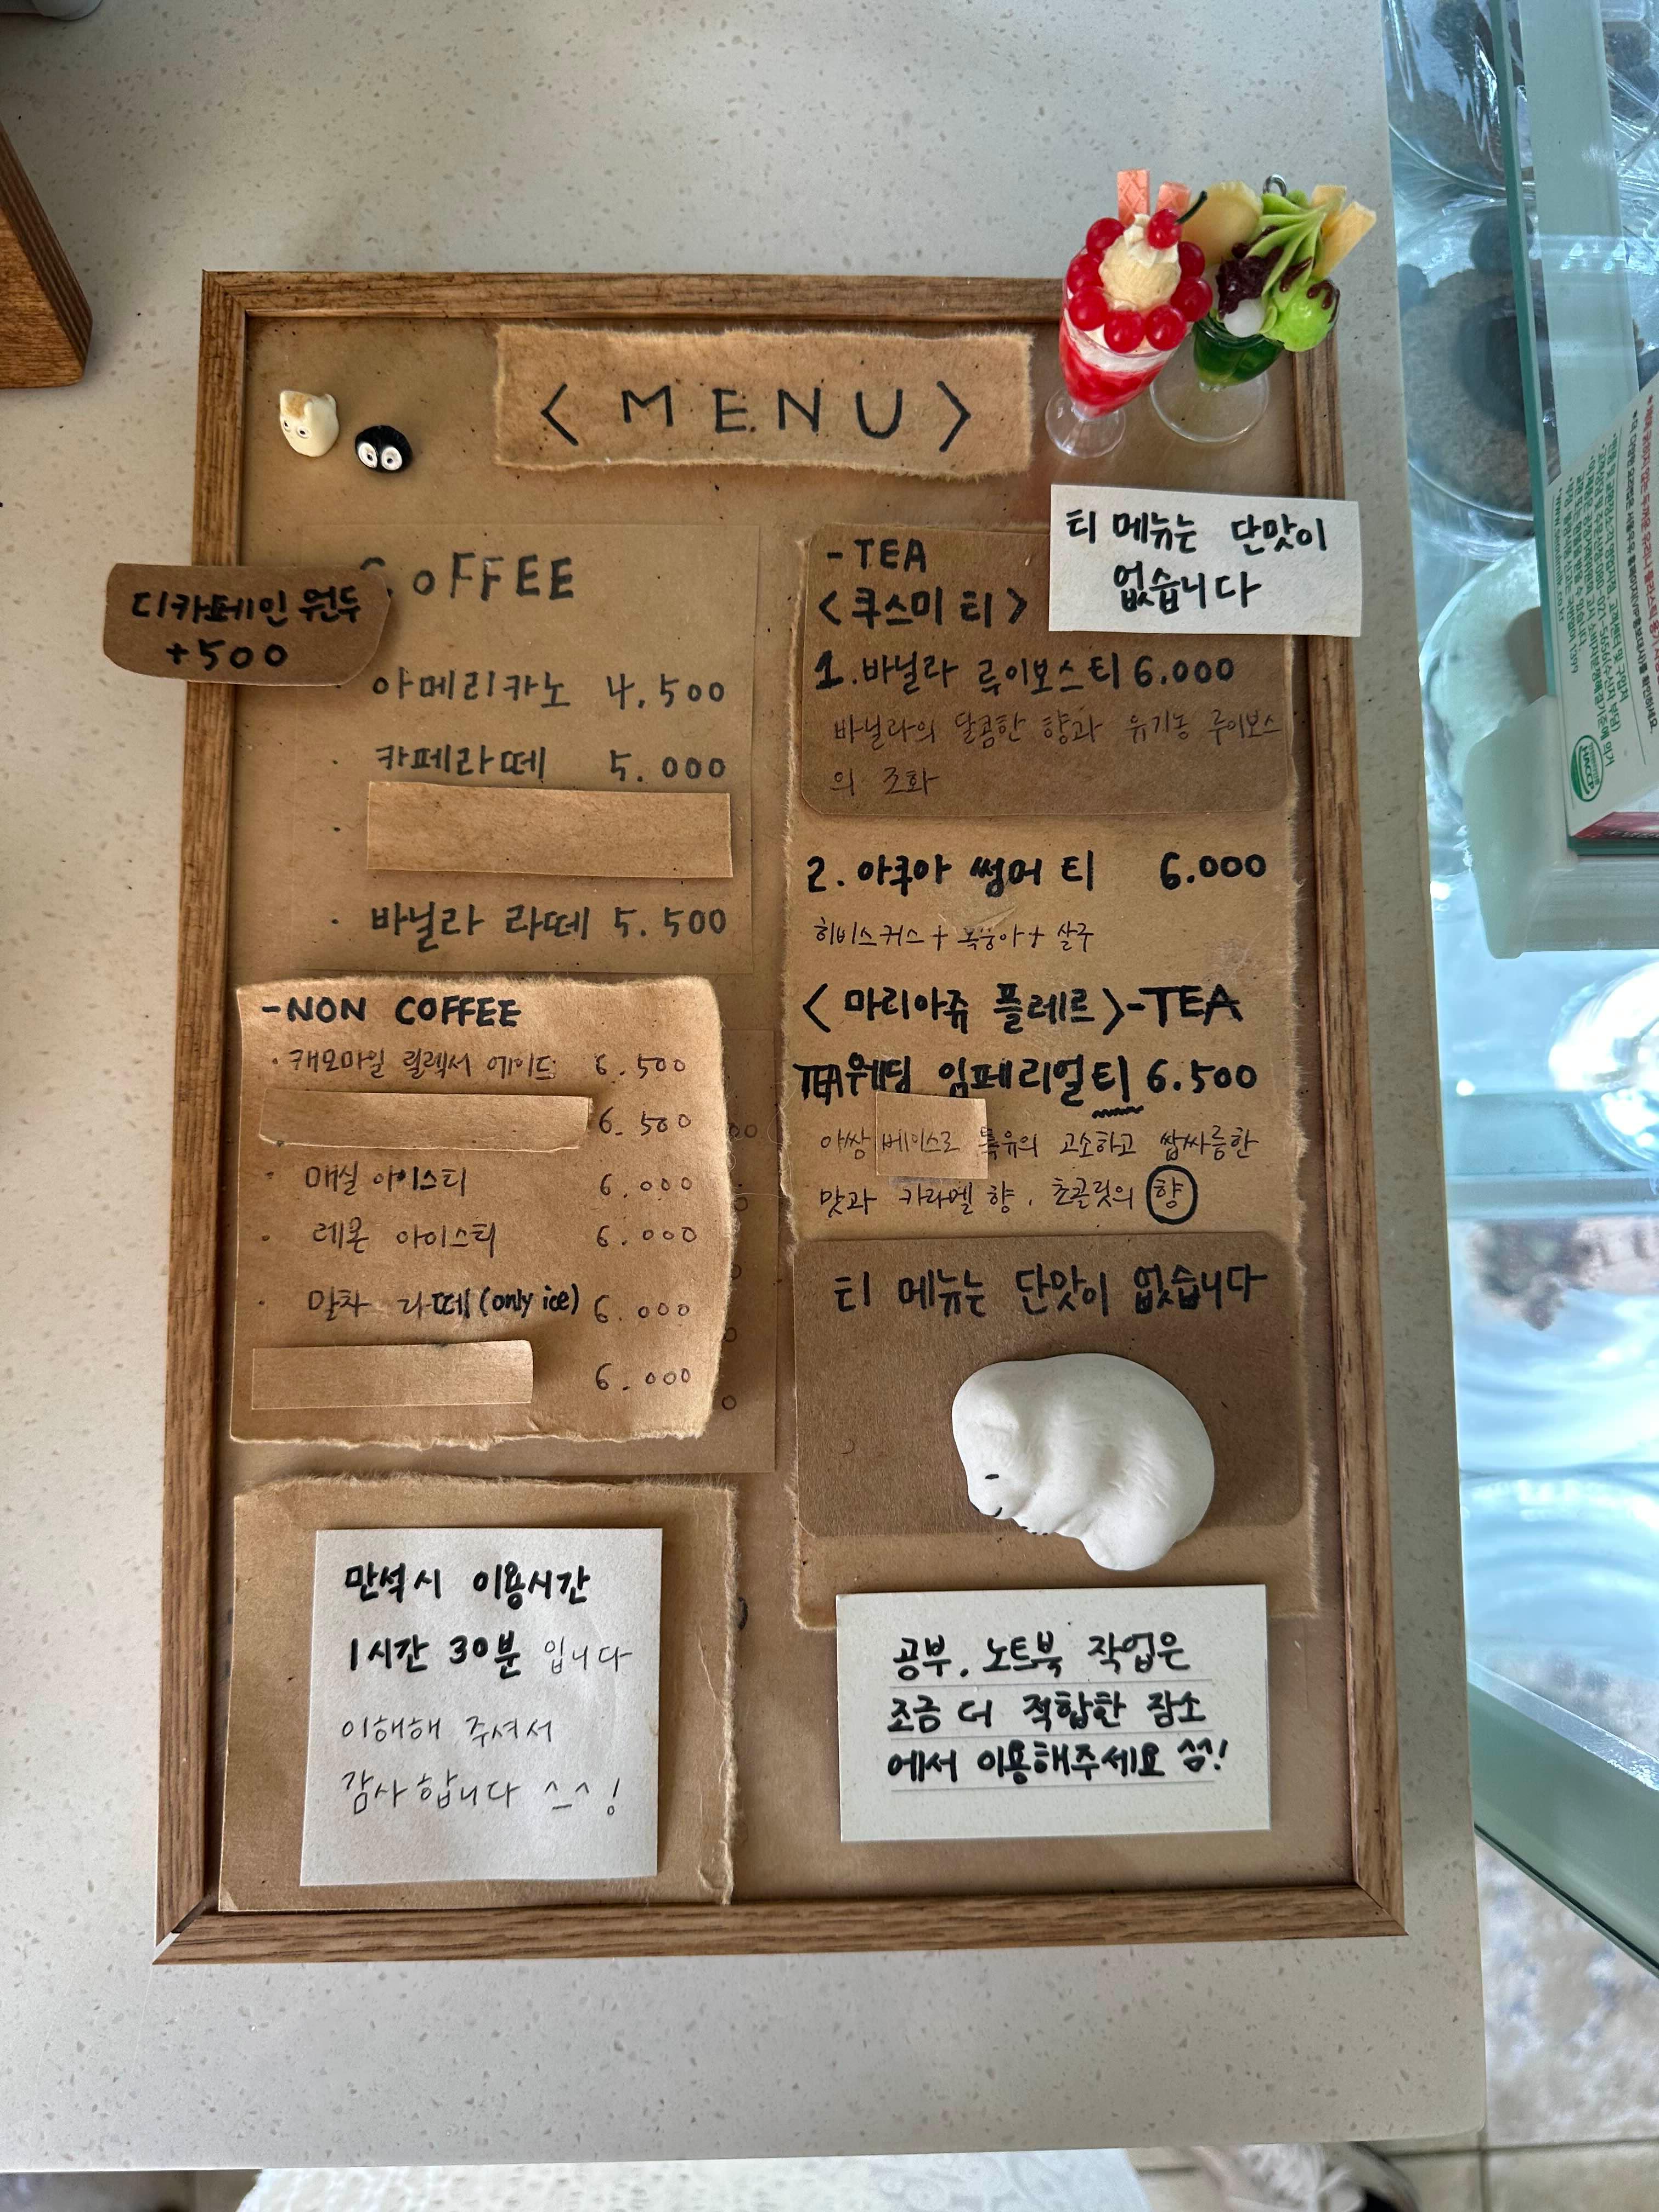 < MENU >
COFFEE
디카페인 원두
+500
· 아메리카노 4,500
· 카페라떼 5.000
· 바닐라 라떼 5.500
-NON COFFEE
· 캐모마일 릴렉서 에이드 6.500
6.500
· 매실 아이스티 6.000
· 레몬 아이스티 6.000
· 말차 라떼(only ice) 6.000
6.000
만석시 이용시간
1시간 30분 입니다
이해해 주셔서
감사합니다 ^_^!
티 메뉴는 단맛이
없습니다
-TEA
<쿠스미 티>
1.바닐라 루이보스티 6.000
바닐라의 달콤한 향과 유기농 루이보스
의 조화
2. 아쿠아 썸머 티 6.000
히비스커스 + 복숭아 + 살구
< 마리아쥬 플레르 >-TEA
TEA웨딩 임페리얼티 6.500
아쌈 베이스로 특유의 고소하고 쌉싸름한
맛과 카라멜 향, 초콜릿의 향
티 메뉴는 단맛이 없습니다
공부, 노트북 작업은
조금 더 적합한 장소
에서 이용해주세요 ^^!